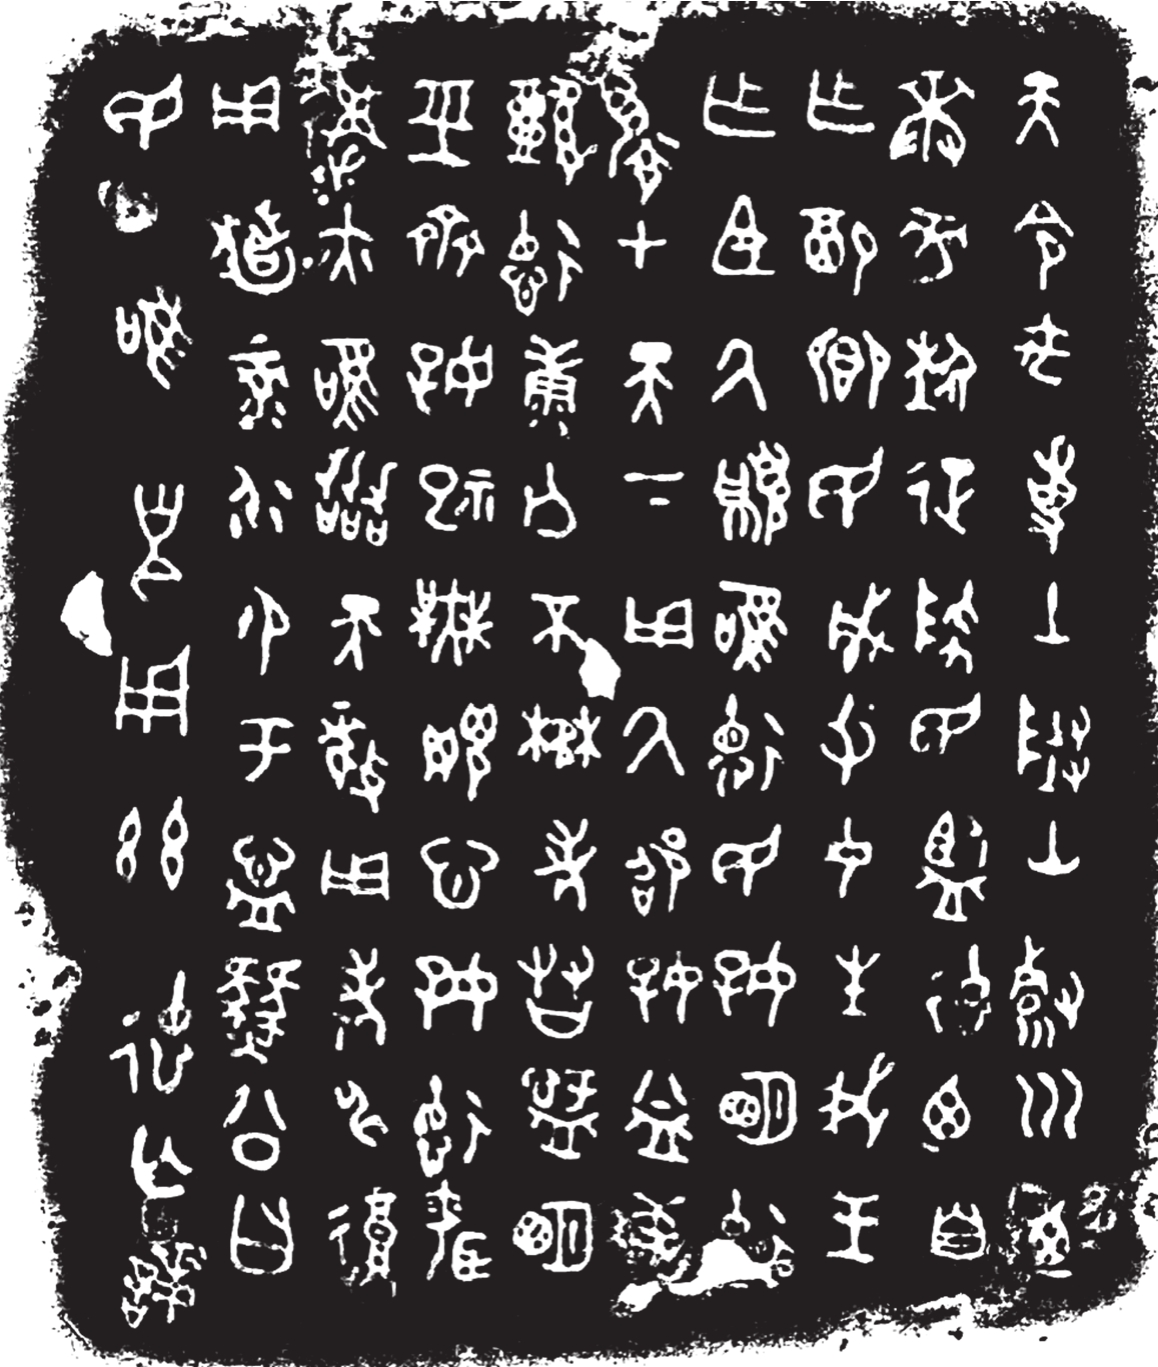 天令禹尃土隓山濬川迺
差方埶征降民監德迺自
作配鄉民成父母生我王
作臣厥沬唯德民好明德
顧在天下用厥邵好益
懿德康亡不懋孝友明
經齊好祀無心好德婚
媾亦唯協天釐用考神復
用祓祿永御于寧豳公曰
民唯克用茲德亡誨